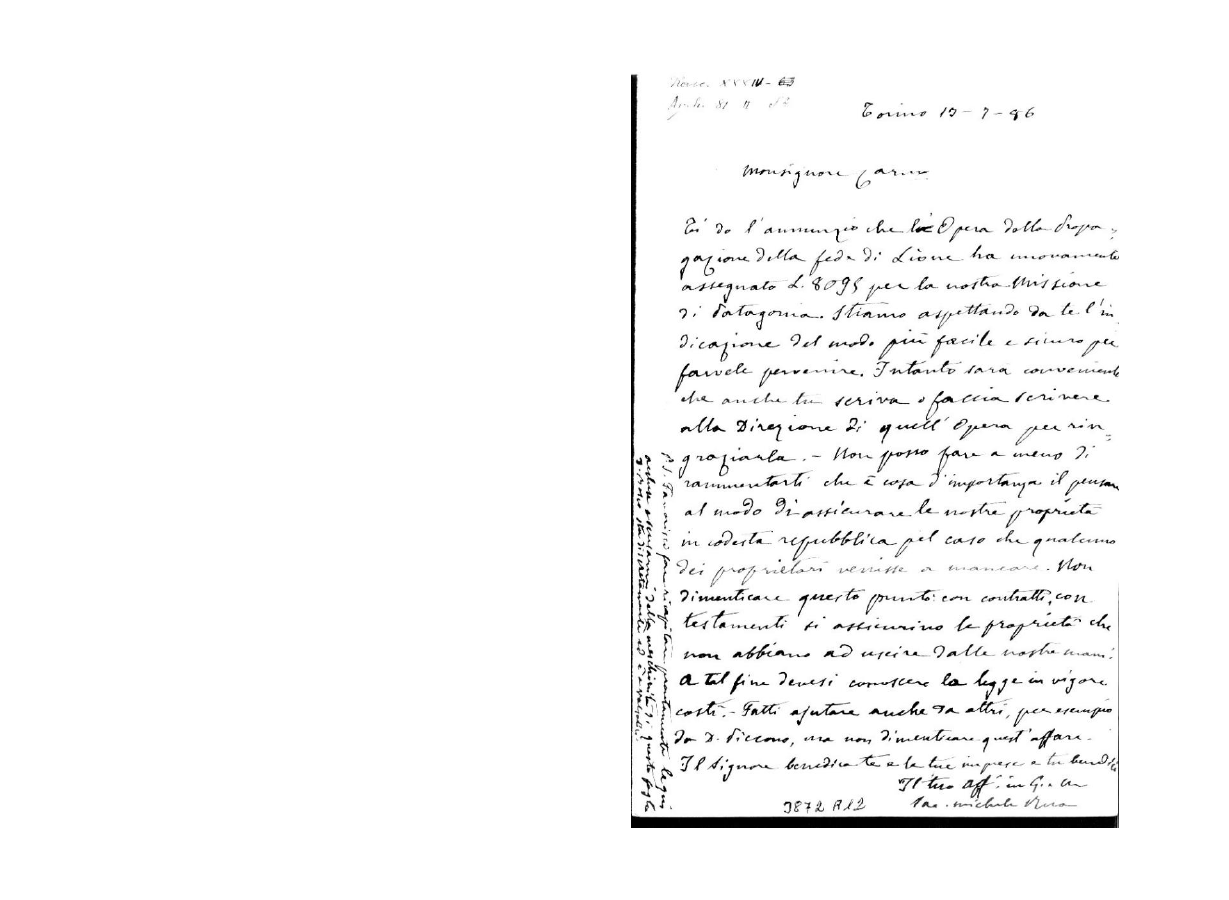 Torino 19-7-86
Monsignore Car.mo
Ti do l'annunzio che la Opera della Propa-
gazione della fede di Lione ha nuovamente
assegnato L. 8095 per la nostra Missione
di Patagonia. Stiamo aspettando da te l'in
dicazione del modo più facile e sicuro per
farvele pervenire. Intanto sarà conveniente
che anche tu scriva o faccia scrivere
alla Direzione di quell'Opera per rin-
graziarla. - Non posso fare a meno di
rammentarti che è cosa d'importanza il pensare
al modo di assicurare le nostre proprietà
in codesta repubblica pel caso che qualcuno
dei proprietari venisse a mancare. Non
dimenticare questo punto: con contratti, con
testamenti si assicurino le proprietà che
non abbiano ad uscire dalle nostre mani.
A tal fine devesi conoscere la legge in vigore
costì. - Fatti ajutare anche da altri, per esempio
da D. Piccono, ma non dimenticare quest'affare.
Il Signore benedica te e le tue imprese e tu benedici
Il tuo Aff. in G. e M.
Sac. Michele Rua
3872 A12
P.S. far ricapitare prontamente le qui
della meschinità di questo foglio